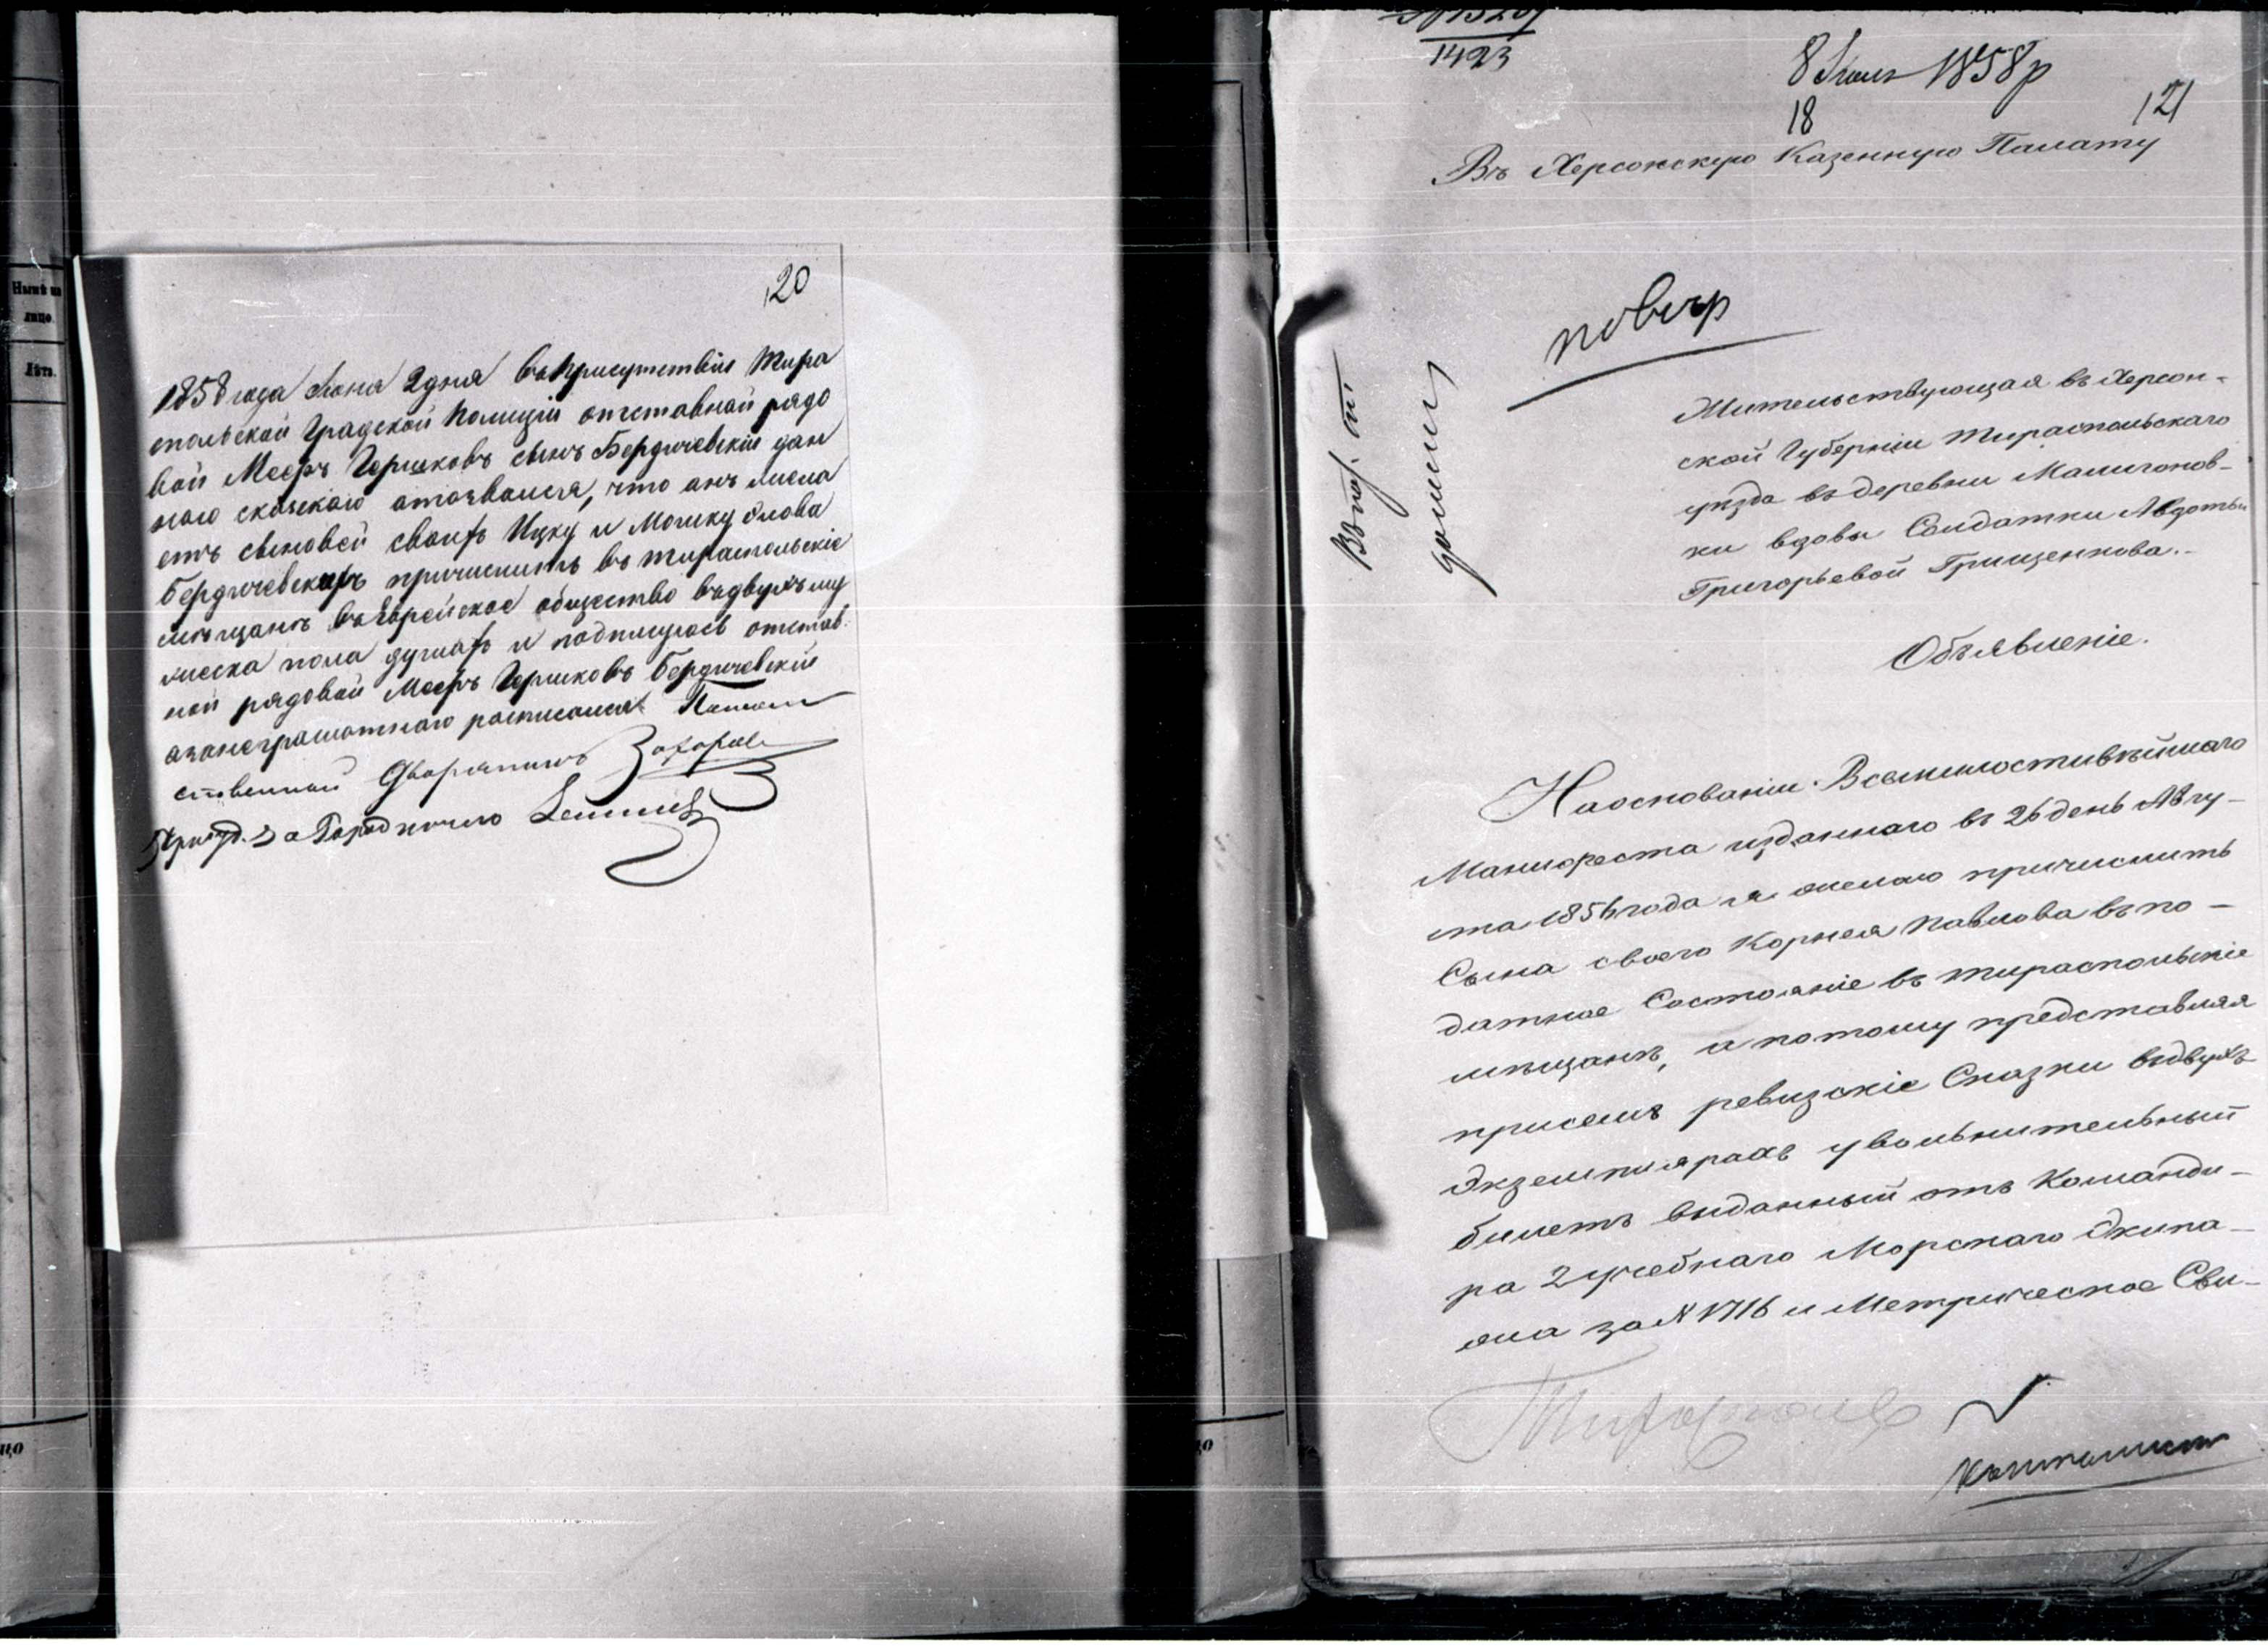 Нынѣ на
лицо.
Лѣта.
120
1858 года Іюня 2 дня въ присутствіи Тира
спольской Градской Полиціи отставной рядо
вой Мееръ Гершковъ сынъ Бердичевскій дан
ного сказкою отозвался, что онъ жела
етъ сыновей своихъ Ицку и Мошку
Бердичевскихъ причислить въ тираспольскіе
мѣщане въ Еврейское общество въ двухъ му
жеска пола душахъ и подпишусь отстав
ной рядовой Мееръ Гершковъ Бердичевскій
а за неграмотнаго росписался
ственный Дворянинъ Захаров
за Городничего
1423
8 Іюля 1858 р
18
121
Въ Херсонскую Казенную Палату
повѣр
Жительствующая въ Херсон-
ской Губерніи Тираспольскаго
уѣзда въ деревни Малигонов-
ки вдовы Солдатки Авдотьи
Григорьевой Грищенкова.
Объявленіе.
На основаніи Всемилостивѣйшаго
Манифеста изданнаго въ 26 день Авгу-
ста 1856 года я желаю причислить
Сына своего Корнея Павлова въ по-
датное Состояніе въ тираспольскіе
мѣщане, а потому представляя
при семъ ревизскіе Сказки въ двухъ
Экземплярахъ увольнительный
билетъ выданный отъ Команди-
ра 2 учебнаго Морскаго Экипа-
жа за N 1716 и Метрическое Сви-